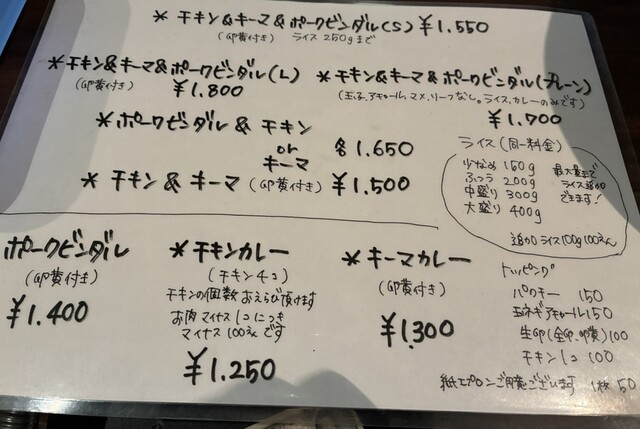 * チキン&キーマ&ポークビンダル(S) ¥1.550
(卵黄付き) ライス 250gまで
* チキン&キーマ&ポークビンダル(L)
(卵黄付き) ¥1.800
* チキン&キーマ&ポークビンダル(プレーン)
(玉子、アチャール、マメ、リーフなし。ライス、カレーのみです)
¥1.700
* ポークビンダル & チキン
or
キーマ
各1.650
* チキン & キーマ (卵黄付き) ¥1.500
ライス(同一料金)
少なめ 150g
ふつう 200g
中盛り 300g
大盛り 400g
最大量まで
ライス追加
できます!
追加ライス100g100えん
ポークビンダル
(卵黄付き)
¥1.400
* チキンカレー
(チキン4コ)
チキンの個数おえらび頂けます
お肉マイナス1コにつき
マイナス100えんです
¥1.250
* キーマカレー
(卵黄付き)
¥1.300
トッピング
パクチー 150
玉ネギアチャール150
生卵(全卵、卵黄)100
チキン1コ 100
紙エプロンご用意ございます 1枚 50